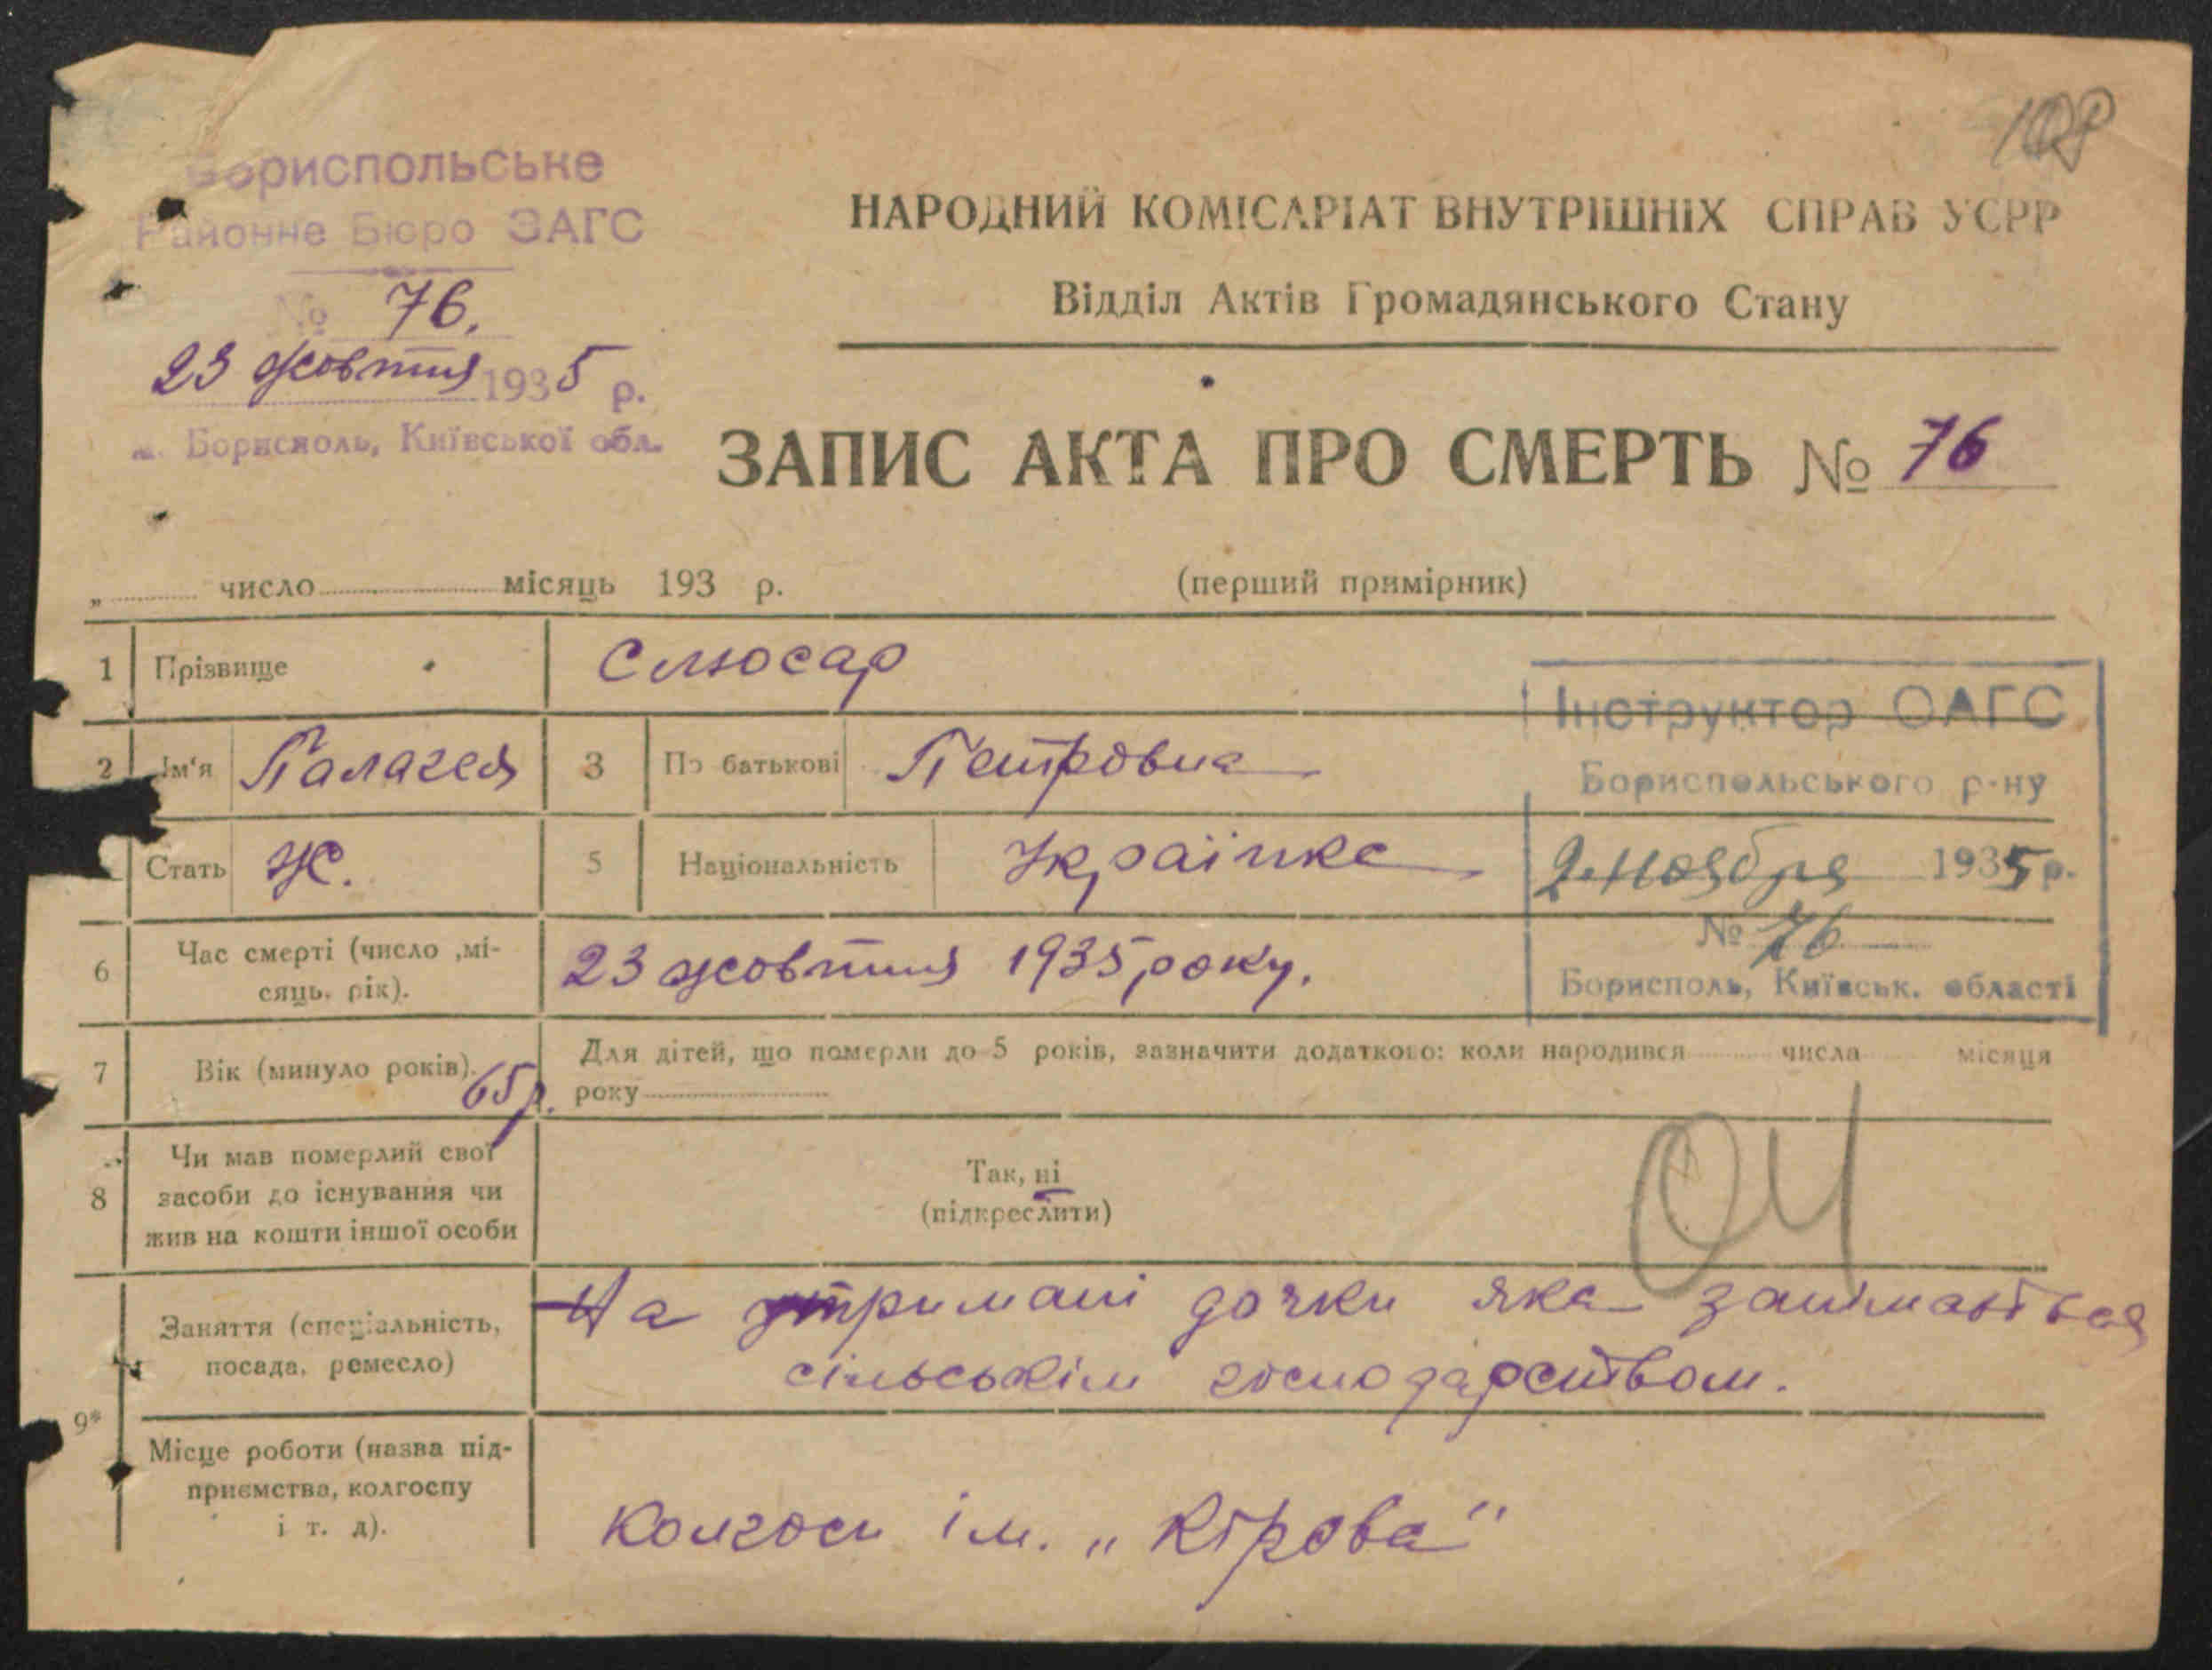 108
Бориспольське
Районне Бюро ЗАГС
№ 76.
23 жовтня 1935 р.
м. Бориспoль, Київської обл.
НАРОДНИЙ КОМІСАРІАТ ВНУТРІШНІХ СПРАВ УСРР
Відділ Актів Громадянського Стану
ЗАПИС АКТА ПРО СМЕРТЬ № 76
„ число місяць 193 р. (перший примірник)
1 Прізвище Слюсар
Інструктор ОАГС
Бориспольського р-ну
2 ноября 1935 р.
№ 76
Борисполь, Київськ. області
2 Ім'я Палагея 3 По батькові Петровна
Стать Ж. 5 Національність Українка
6 Час смерті (число ,мі-
сяць, рік). 23 жовтня 1935 року.
7 Вік (минуло років). 65 р. Для дітей, що померли до 5 років, зазначити додатково: коли народився числа місяця
року
8 Чи мав померлий свої
засоби до існування чи
жив на кошти іншої особи
Так, ні
(підкреслити)
9*
Заняття (спеціальність,
посада, ремесло)
На утримані дочки яка занімається
сільським господарством.
Місце роботи (назва під-
приємства, колгоспу
і т. д).
Колгосп ім. „Кірова"